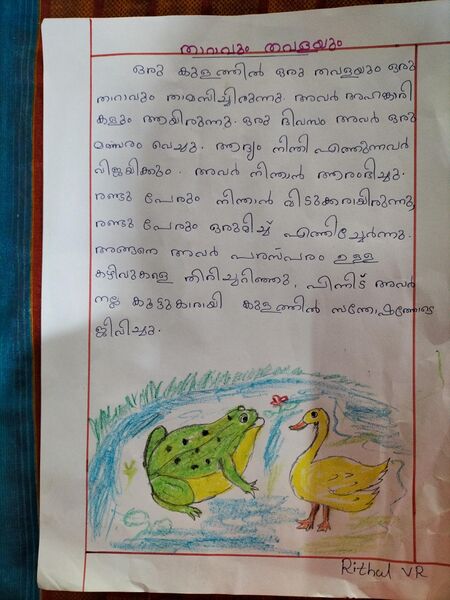 താറാവും തവളയും
ഒരു കുളത്തിൽ ഒരു തവളയും ഒരു
താറാവും താമസിച്ചിരുന്നു. അവർ അഹങ്കാരി
കളും ആയിരുന്നു. ഒരു ദിവസം അവർ ഒരു
മത്സരം വെച്ചു. ആദ്യം നീന്തി എത്തുന്നവർ
വിജയിക്കും. അവർ നീന്താൻ ആരംഭിച്ചു.
രണ്ടു പേരും നീന്താൻ മിടുക്കരായിരുന്നു,
രണ്ടു പേരും ഒരുമിച്ച് എത്തിച്ചേർന്നു.
അങ്ങനെ അവർ പരസ്പരം ഉള്ള
കഴിവുകളെ തിരിച്ചറിഞ്ഞു, പിന്നീട് അവർ
നല്ല കൂട്ടുകാരായി കുളത്തിൽ സന്തോഷത്തോടെ
ജീവിച്ചു.
Rithul VR